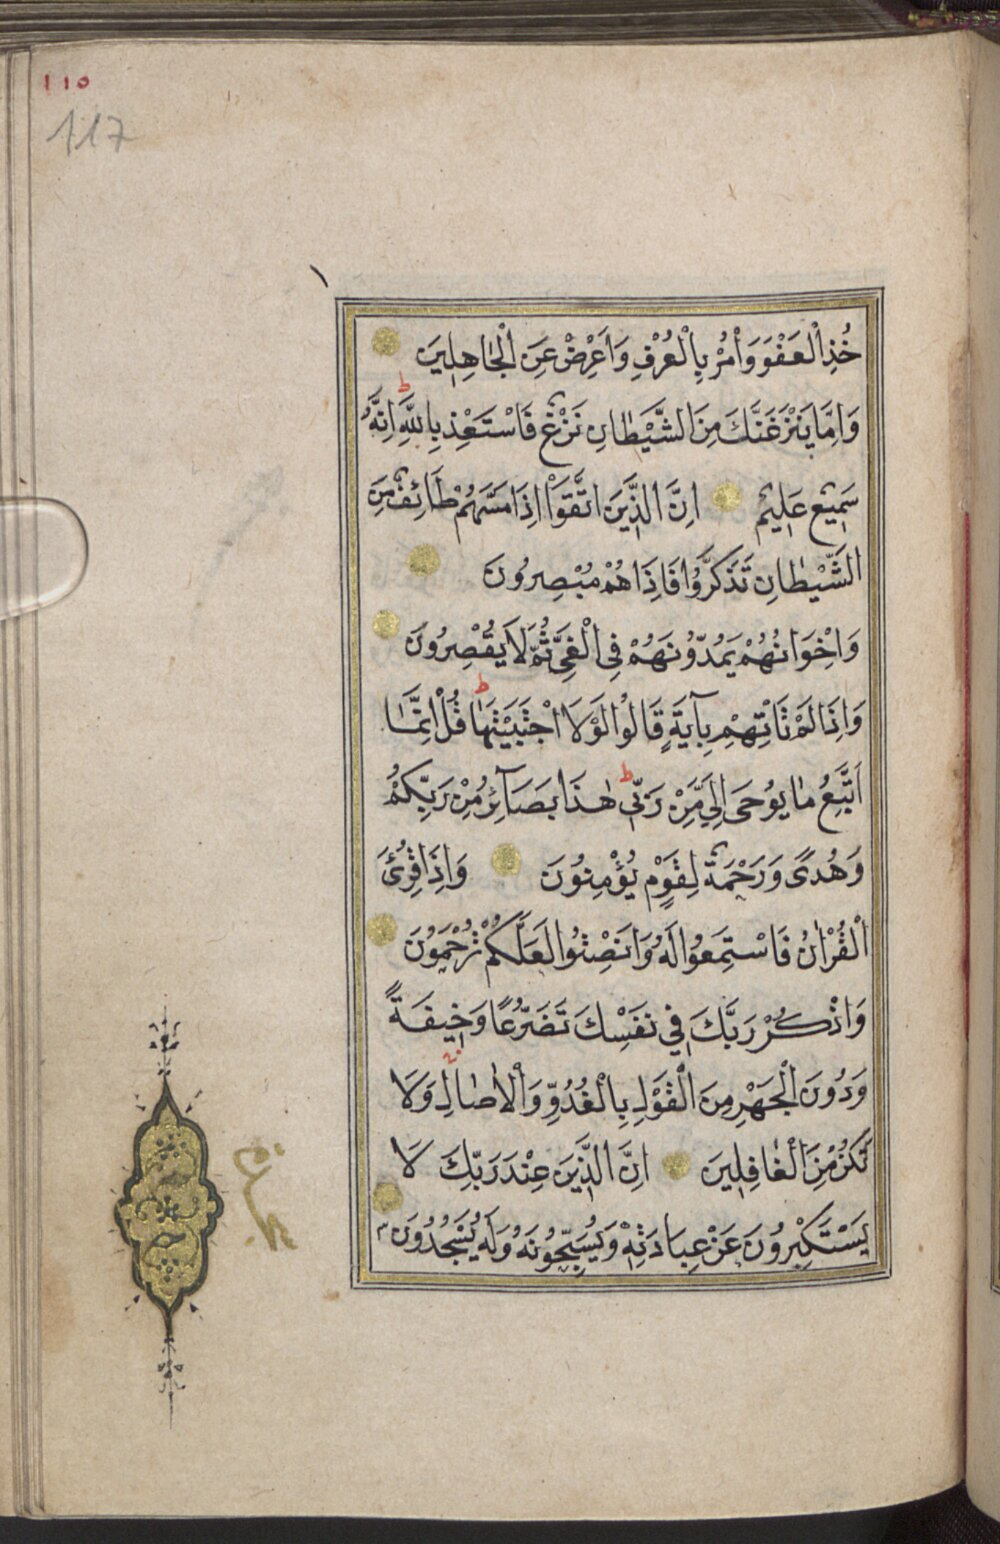 ١١٥
117
خُذِ الْعَفْوَ وَأْمُرْ بِالْعُرْفِ وَاَعْرِضْ عَنِ الْجَاهِلِينَ
وَاِمَّا يَنْزَغَنَّكَ مِنَ الشَّيْطَانِ نَزْغٌ فَاسْتَعِذْ بِاللّٰهِ ط اِنَّهُ
سَمِيعٌ عَلِيمٌ اِنَّ الَّذِينَ اتَّقَوْا اِذَا مَسَّهُمْ طَائِفٌ مِنَ
الشَّيْطَانِ تَذَكَّرُوا فَاِذَا هُمْ مُبْصِرُونَ
وَاِخْوَانُهُمْ يَمُدُّونَهُمْ فِي الْغَيِّ ثُمَّ لَا يُقْصِرُونَ
وَاِذَا لَمْ تَأْتِهِمْ بِآيَةٍ قَالُوا لَوْلَا اجْتَبَيْتَهَا ط قُلْ اِنَّمَا
اَتَّبِعُ مَا يُوحَى اِلَيَّ مِنْ رَبِّي ط هٰذَا بَصَآئِرُ مِنْ رَبِّكُمْ
وَهُدًى وَرَحْمَةٌ لِقَوْمٍ يُؤْمِنُونَ وَاِذَا قُرِئَ
الْقُرْاٰنُ فَاسْتَمِعُوا لَهُ وَاَنْصِتُوا لَعَلَّكُمْ تُرْحَمُونَ
وَاذْكُرْ رَبَّكَ فِي نَفْسِكَ تَضَرُّعًا وَخِيفَةً
وَدُونَ الْجَهْرِ مِنَ الْقَوْلِ بِالْغُدُوِّ وَالْاٰصَالِ وَلَا
تَكُنْ مِنَ الْغَافِلِينَ اِنَّ الَّذِينَ عِنْدَ رَبِّكَ لَا
يَسْتَكْبِرُونَ عَنْ عِبَادَتِهِ وَيُسَبِّحُونَهُ وَلَهُ يَسْجُدُونَ